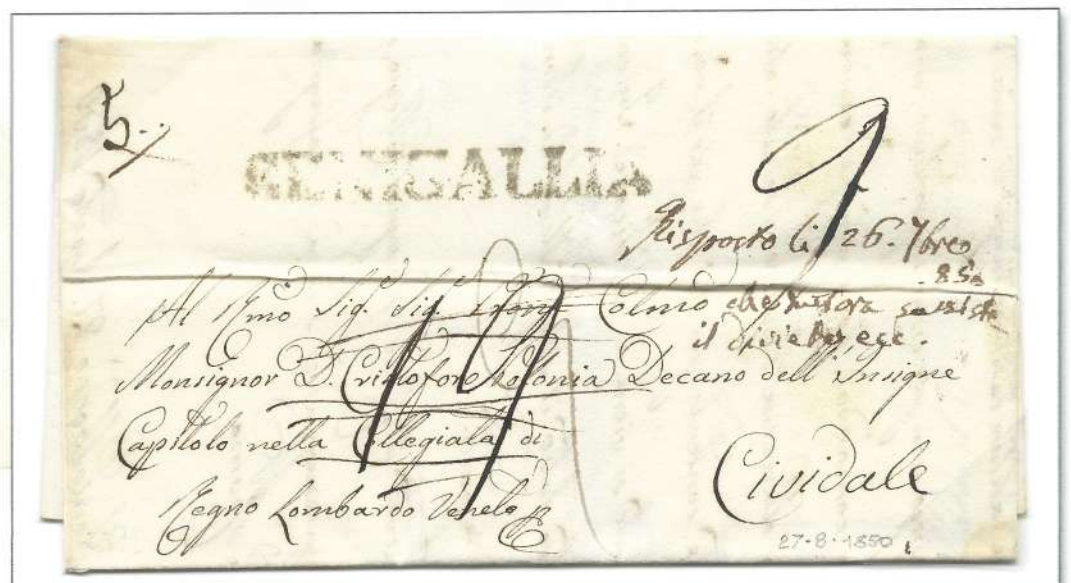 5
SENIGALLIA
9
Risposto li 26. 7bre
850
che tuttora sussiste
il divieto ecc.
Al Rmo Sig. Sig. Colmo
Monsignor D. Cristoforo Decano dell' Insigne
Capitolo nella Collegiata di
Cividale
Regno Lombardo Veneto
19
27-8-1850